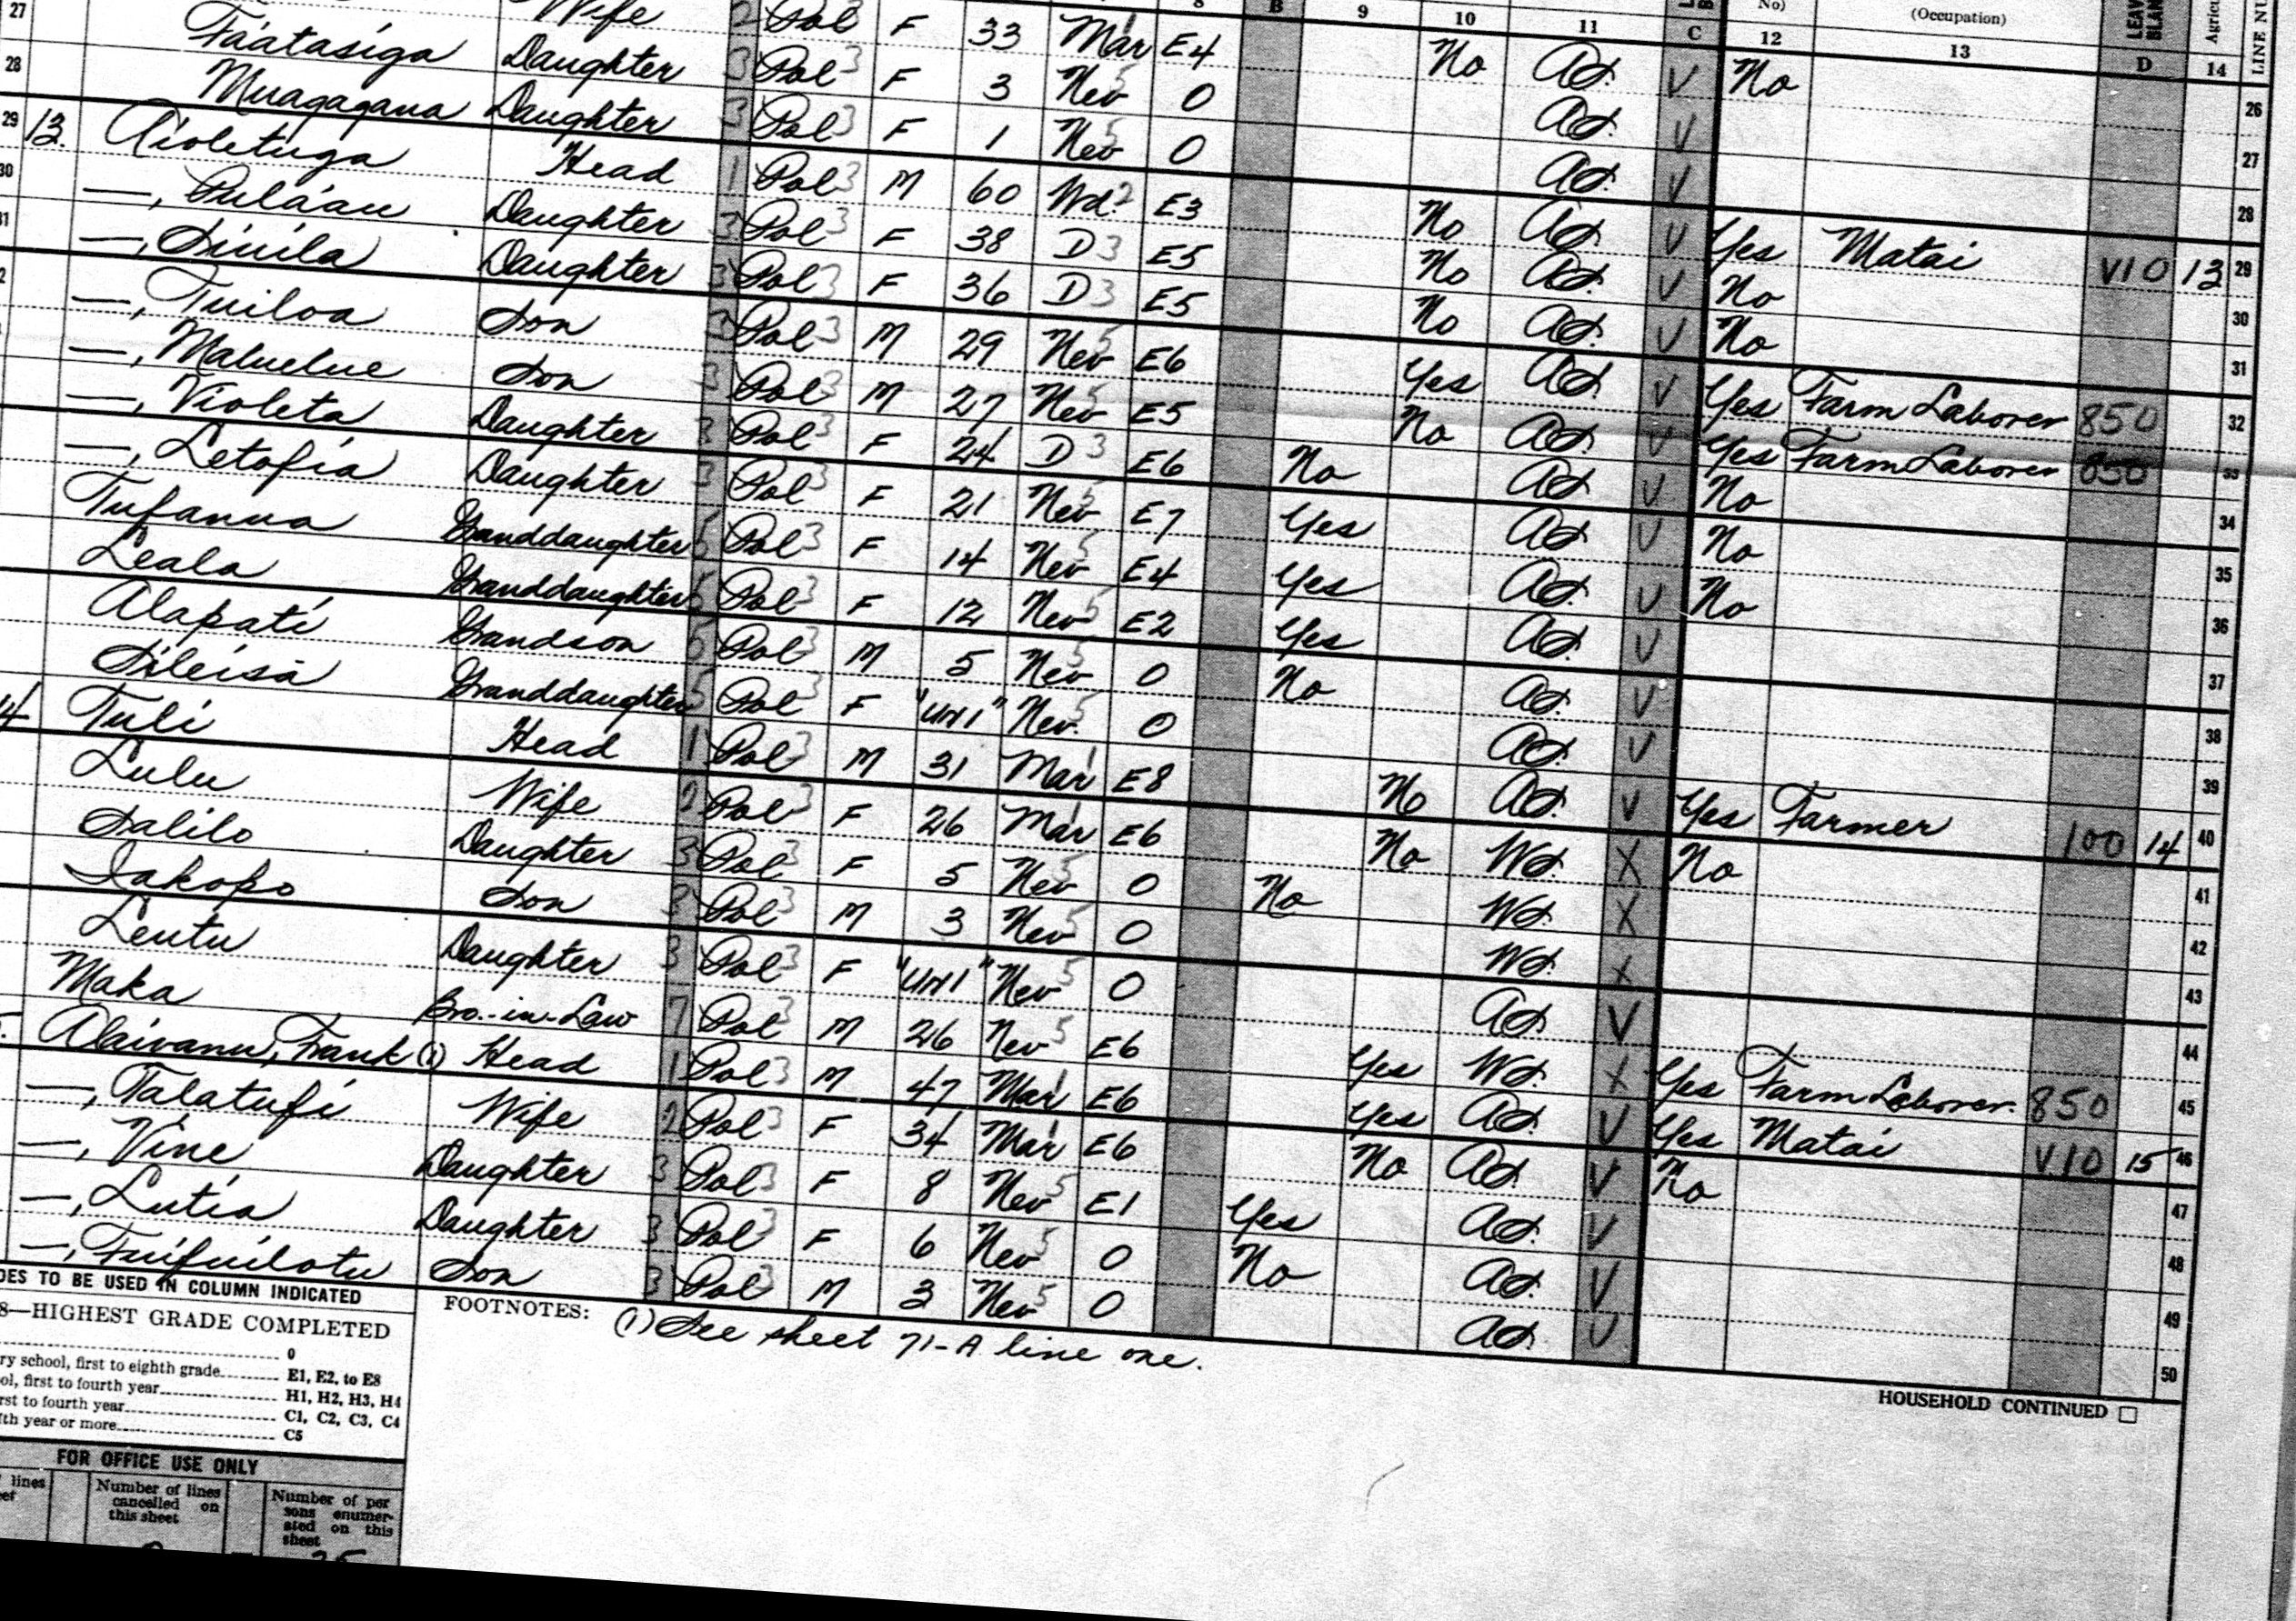 8 B 9 10 11 C No) 12 (Occupation) 13 LEAV BLAN D Agricu 14 LINE NU
Wife 2 Pol F 33 Mar E4 No AS. V No 26
27 Fáatasiga Daughter 3 Pol 3 F 3 Nev 5 0 AS. V 27
28 Muagagana Daughter 3 Pol 3 F 1 Nev 5 0 AS. V 28
29 13. Aioletuga Head 1 Pol 3 M 60 Wd. 2 E3 No AS. V Yes Matai V10 13 29
30 —, Puláau Daughter 3 Pol 3 F 38 D 3 E5 No AS. V No 30
31 —, Siuila Daughter 3 Pol 3 F 36 D 3 E5 No AS. V No 31
2 —, Tuiloa Son 3 Pol 3 M 29 Nev 5 E6 Yes AS. V Yes Farm Laborer 850 32
—, Maluelue Son 3 Pol 3 M 27 Nev 5 E5 No AS. V Yes Farm Laborer 850 33
—, Violeta Daughter 3 Pol 3 F 24 D 3 E6 No AS V No 34
—, Letofia Daughter 3 Pol 3 F 21 Nev 5 E7 Yes AS. V No 35
Tufanua Granddaughter 5 Pol 3 F 14 Nev 5 E4 Yes AS. V No 36
Leala Granddaughter 5 Pol 3 F 12 Nev 5 E2 Yes AS. V 37
Alapati Grandson 5 Pol 3 M 5 Nev 5 0 No AS. V 38
Sileisa Granddaughter 5 Pol 3 F "Un1" Nev. 5 0 AS. V 39
4 Tuli Head 1 Pol 3 M 31 Mar 1 E8 No AS. V Yes Farmer 100 14 40
Lulu Wife 2 Pol 3 F 26 Mar 1 E6 No WS. X No 41
Salilo Daughter 3 Pol 3 F 5 Nev 5 0 No WS. X 42
Iakopo Son 3 Pol 3 M 3 Nev 5 0 WS. X 43
Leutu Daughter 3 Pol 3 F "Un1" Nev 5 0 AS. V 44
Maka Bro.-in-Law 7 Pol 3 M 26 Nev 5 E6 Yes WS. X Yes Farm Laborer. 850 45
Alaivanu, Frank (1) Head 1 Pol 3 M 47 Mar 1 E6 Yes AS. V Yes Matai V10 15 46
—, Talatufi Wife 2 Pol 3 F 34 Mar 1 E6 No AS V No 47
—, Vine Daughter 3 Pol 3 F 8 Nev 5 E1 Yes AS. V 48
—, Lutia Daughter 3 Pol 3 F 6 Nev 5 0 No AS. V 49
—, Fuifuilotu Son 3 Pol 3 M 3 Nev 5 0 AS. V 50
DES TO BE USED IN COLUMN INDICATED
8—HIGHEST GRADE COMPLETED
0
ry school, first to eighth grade E1, E2, to E8
ol, first to fourth year H1, H2, H3, H4
rst to fourth year C1, C2, C3, C4
fth year or more C5
FOOTNOTES: (1) See sheet 71-A line one.
HOUSEHOLD CONTINUED
FOR OFFICE USE ONLY
lines
eet
Number of lines
cancelled on
this sheet
Number of per
sons enumer-
ated on this
sheet